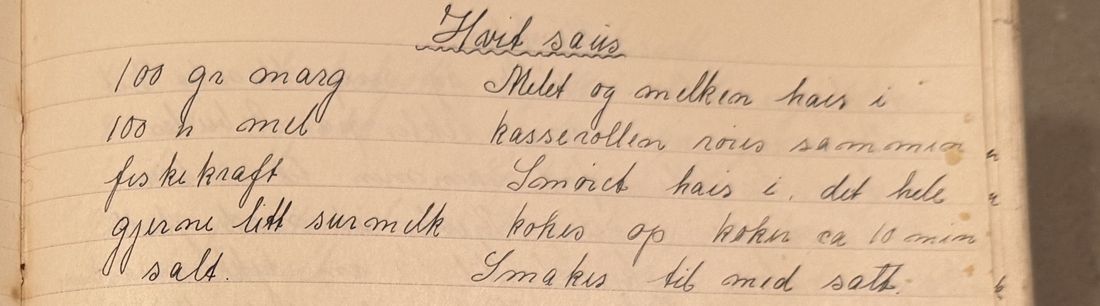 Hvit saus
100 gr marg
100 " mel
fiskekraft
gjerne litt surmelk
salt.
Melet og melken haes i
kasserollen røres sammen
Smøret haes i. det hele
kokes op koker ca 10 min
Smakes til med salt.